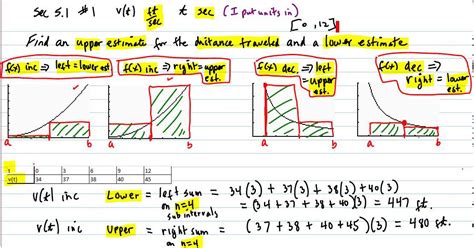 Sec 5.1 #1 v(t) ft/sec t sec (I put units in)
[0, 12]
Find an upper estimate for the distance traveled and a lower estimate
f(x) inc ⇒ left = lower est
f(x) inc ⇒ right = upper est.
f(x) dec ⇒ left = upper est.
f(x) dec ⇒ right = lower est.
a b a b a b a b
t 0 3 6 9 12
v(t) 34 37 38 40 45
v(t) inc Lower = left sum on n=4 sub intervals = 34(3) + 37(3) + 38(3) + 40(3)
= (34 + 37 + 38 + 40)(3) = 447 ft.
v(t) inc Upper = right sum on n=4 = (37 + 38 + 40 + 45)(3) = 480 ft.